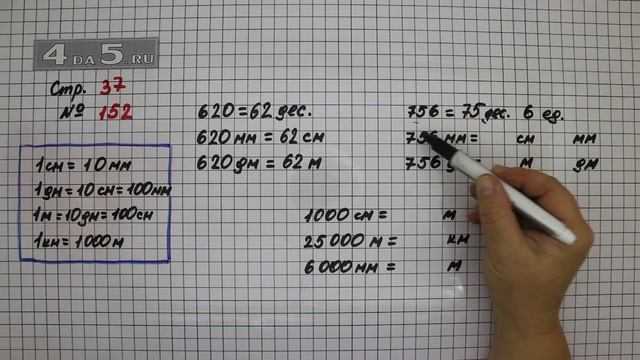 4 DA 5.RU
Стр. 37
№ 152
1 см = 10 мм
1 дм = 10 см = 100 мм
1 м = 10 дм = 100 см
1 км = 1000 м
620 = 62 дес.
620 мм = 62 см
620 дм = 62 м
756 = 75 дес. 6 ед.
756 мм = см мм
756 м дм
1000 см = м
25 000 м = км
6 000 мм = м